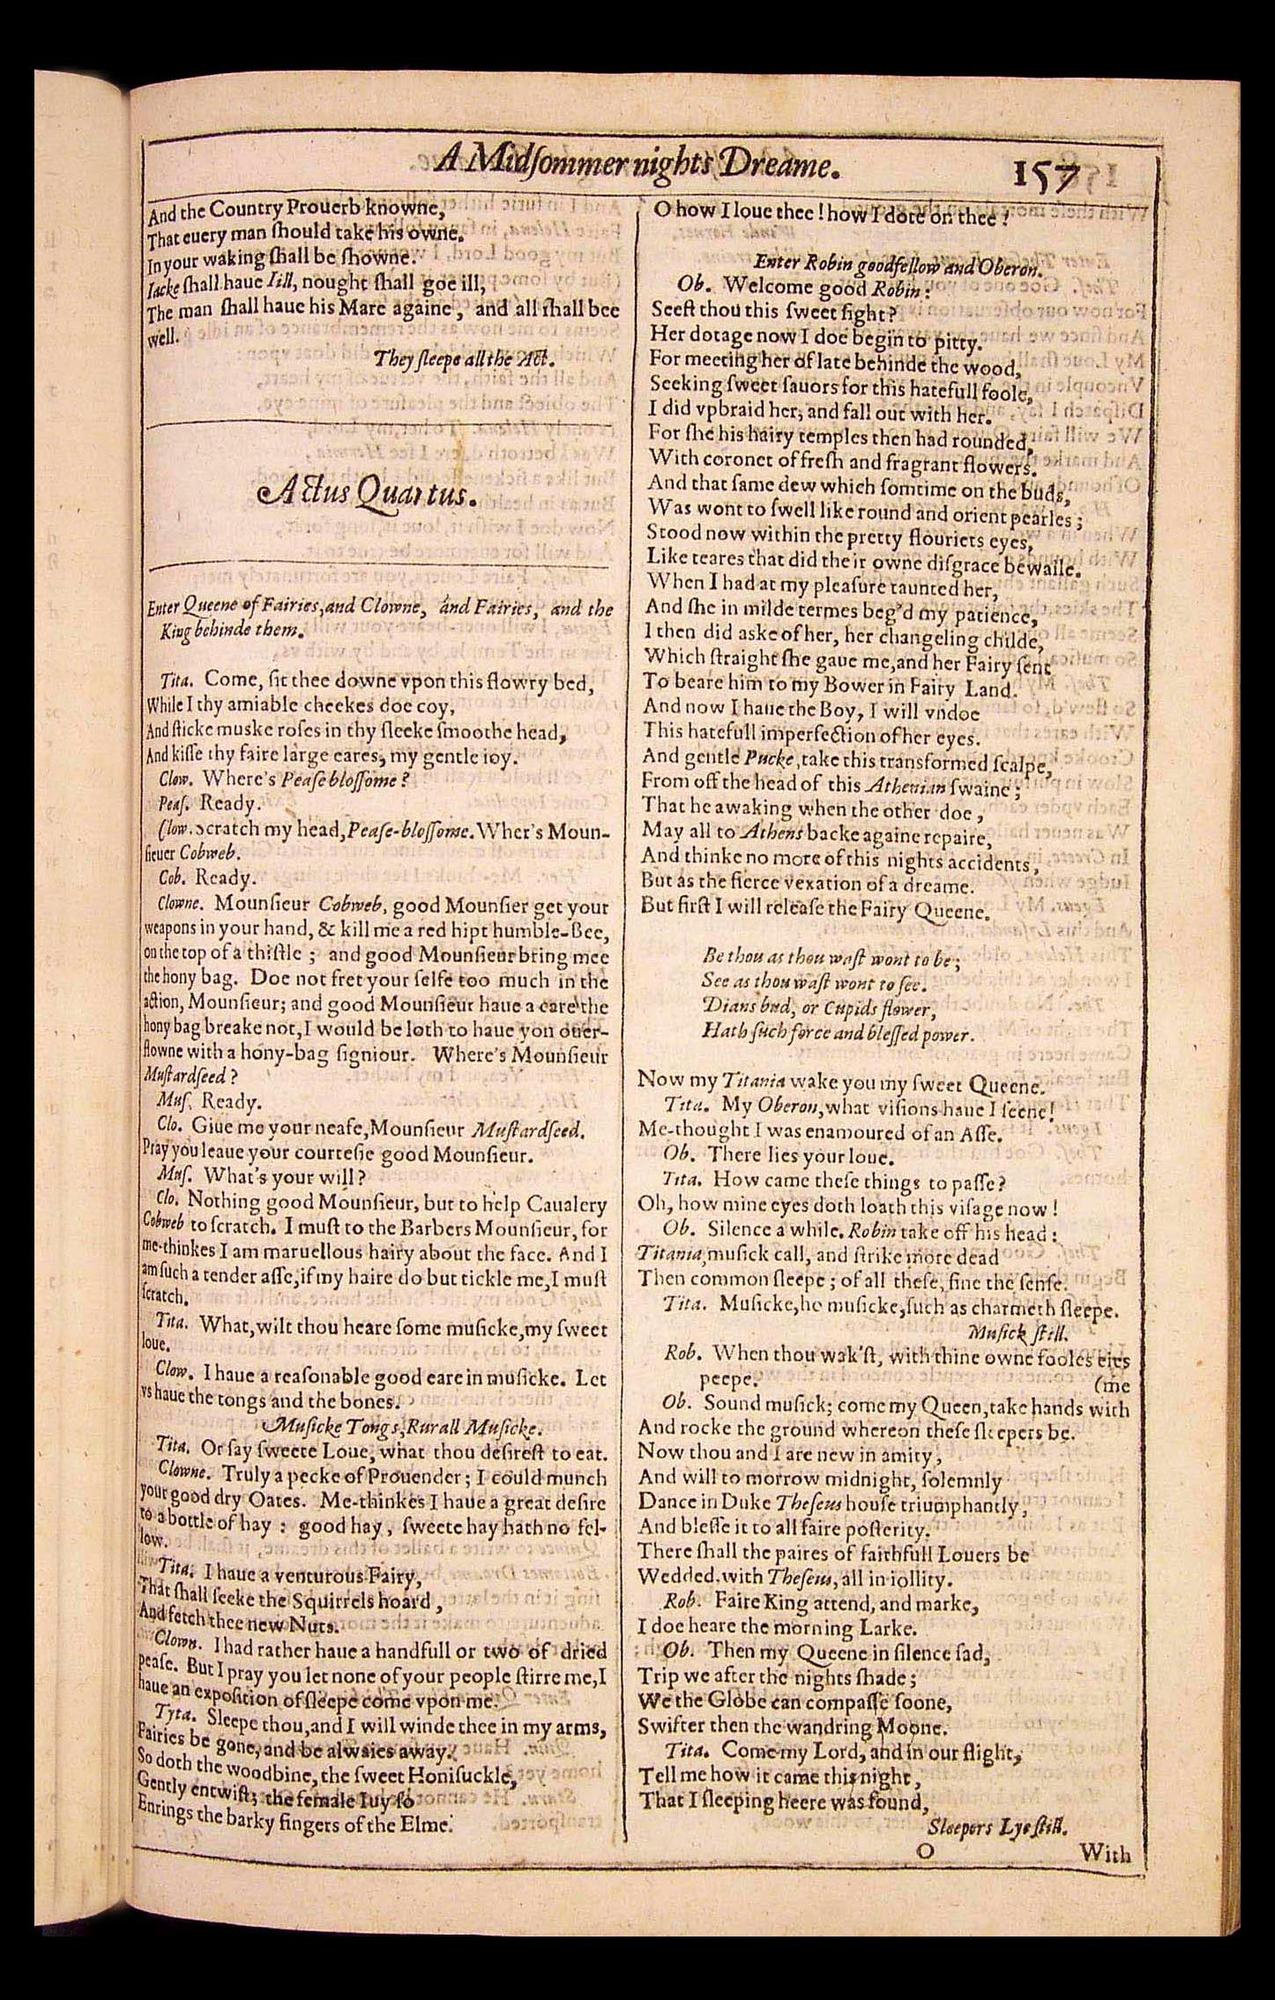 A Midſommer nights Dreame. 157
And the Country Prouerb knowne,
That euery man ſhould take his owne.
In your waking ſhall be ſhowne.
Iacke ſhall haue Iill, nought ſhall goe ill,
The man ſhall haue his Mare againe, and all ſhall bee
well.
They ſleepe all the Act.
Actus Quartus.
Enter Queene of Fairies, and Clowne, and Fairies, and the
King behinde them.
Tita. Come, ſit thee downe vpon this flowry bed,
While I thy amiable cheekes doe coy,
And ſticke muske roſes in thy ſleeke ſmoothe head,
And kiſſe thy faire large eares, my gentle ioy.
Clow. Where's Peaſe bloſſome?
Peaſ. Ready.
Clow. Scratch my head, Peaſe-bloſſome. Wher's Moun-
ſieuer Cobweb.
Cob. Ready.
Clowne. Mounſieur Cobweb, good Mounſier get your
weapons in your hand, & kill me a red hipt humble-Bee,
on the top of a thiſtle; and good Mounſieur bring mee
the hony bag. Doe not fret your ſelfe too much in the
action, Mounſieur; and good Mounſieur haue a care the
hony bag breake not, I would be loth to haue yon ouer-
flowne with a hony-bag ſigniour. Where's Mounſieur
Muſtardſeed?
Muſ. Ready.
Clo. Giue me your neafe, Mounſieur Muſtardſeed.
Pray you leaue your courteſie good Mounſieur.
Muſ. What's your will?
Clo. Nothing good Mounſieur, but to help Caualery
Cobweb to ſcratch. I muſt to the Barbers Mounſieur, for
me-thinkes I am maruellous hairy about the face. And I
am ſuch a tender aſſe, if my haire do but tickle me, I muſt
ſcratch.
Tita. What, wilt thou heare ſome muſicke, my ſweet
loue.
Clow. I haue a reaſonable good eare in muſicke. Let
vs haue the tongs and the bones.
Muſicke Tongs, Rurall Muſicke.
Tita. Or ſay ſweete Loue, what thou deſireſt to eat.
Clowne. Truly a pecke of Prouender; I could munch
your good dry Oates. Me-thinkes I haue a great deſire
to a bottle of hay: good hay, ſweete hay hath no fel-
low.
Tita. I haue a venturous Fairy,
That ſhall ſeeke the Squirrels hoard,
And fetch thee new Nuts.
Clown. I had rather haue a handfull or two of dried
peaſe. But I pray you let none of your people ſtirre me, I
haue an expoſition of ſleepe come vpon me.
Tyta. Sleepe thou, and I will winde thee in my arms,
Fairies be gone, and be alwaies away.
So doth the woodbine, the ſweet Honiſuckle,
Gently entwiſt; the female Iuy ſo
Enrings the barky fingers of the Elme.
O how I loue thee! how I dote on thee!
Enter Robin goodfellow and Oberon.
Ob. Welcome good Robin:
Seeſt thou this ſweet ſight?
Her dotage now I doe begin to pitty.
For meeting her of late behinde the wood,
Seeking ſweet ſauors for this hatefull foole,
I did vpbraid her, and fall out with her.
For ſhe his hairy temples then had rounded,
With coronet of freſh and fragrant flowers.
And that ſame dew which ſomtime on the buds,
Was wont to ſwell like round and orient pearles;
Stood now within the pretty flouriets eyes,
Like teares that did their owne diſgrace bewaile.
When I had at my pleaſure taunted her,
And ſhe in milde termes beg'd my patience,
I then did aske of her, her changeling childe,
Which ſtraight ſhe gaue me, and her Fairy ſent
To beare him to my Bower in Fairy Land.
And now I haue the Boy, I will vndoe
This hatefull imperfection of her eyes.
And gentle Pucke, take this transformed ſcalpe,
From off the head of this Athenian ſwaine;
That he awaking when the other doe,
May all to Athens backe againe repaire,
And thinke no more of this nights accidents,
But as the fierce vexation of a dreame.
But firſt I will releaſe the Fairy Queene.
Be thou as thou waſt wont to be;
See as thou waſt wont to ſee.
Dians bud, or Cupids flower,
Hath ſuch force and bleſſed power.
Now my Titania wake you my ſweet Queene.
Tita. My Oberon, what viſions haue I ſeene!
Me-thought I was enamoured of an Aſſe.
Ob. There lies your loue.
Tita. How came theſe things to paſſe?
Oh, how mine eyes doth loath this viſage now!
Ob. Silence a while. Robin take off his head:
Titania, muſick call, and ſtrike more dead
Then common ſleepe; of all theſe, fine the ſenſe.
Tita. Muſicke, ho muſicke, ſuch as charmeth ſleepe.
Muſick ſtill.
Rob. When thou wak'ſt, with thine owne fooles eies
peepe. (me
Ob. Sound muſick; come my Queen, take hands with
And rocke the ground whereon theſe ſleepers be.
Now thou and I are new in amity,
And will to morrow midnight, ſolemnly
Dance in Duke Theſeus houſe triumphantly,
And bleſſe it to all faire poſterity.
There ſhall the paires of faithfull Louers be
Wedded, with Theſeus, all in iollity.
Rob. Faire King attend, and marke,
I doe heare the morning Larke.
Ob. Then my Queene in ſilence ſad,
Trip we after the nights ſhade;
We the Globe can compaſſe ſoone,
Swifter then the wandring Moone.
Tita. Come my Lord, and in our flight,
Tell me how it came this night,
That I ſleeping heere was found,
Sleepers Lye ſtill.
O With